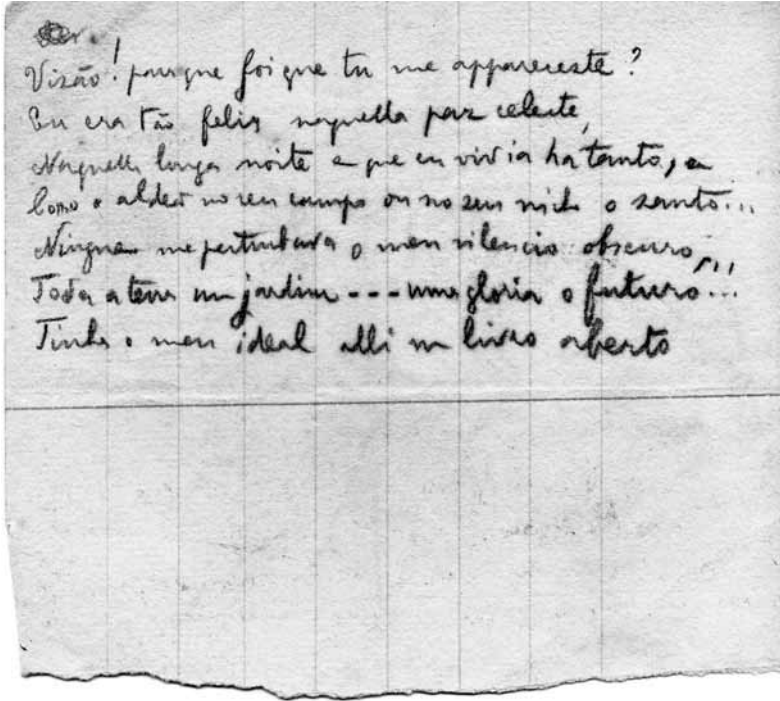 Visão! porque foi que tu me appareceste?
Eu era tão feliz naquella paz celeste,
Naquella longa noite e que eu vivia ha tanto,
Como o aldeão no seu campo ou no seu nicho o santo...
Ninguem me perturbava o meu silencio obscuro,
Toda a terra um jardim --- uma gloria o futuro...!
Tinha o meu ideal alli um livro aberto